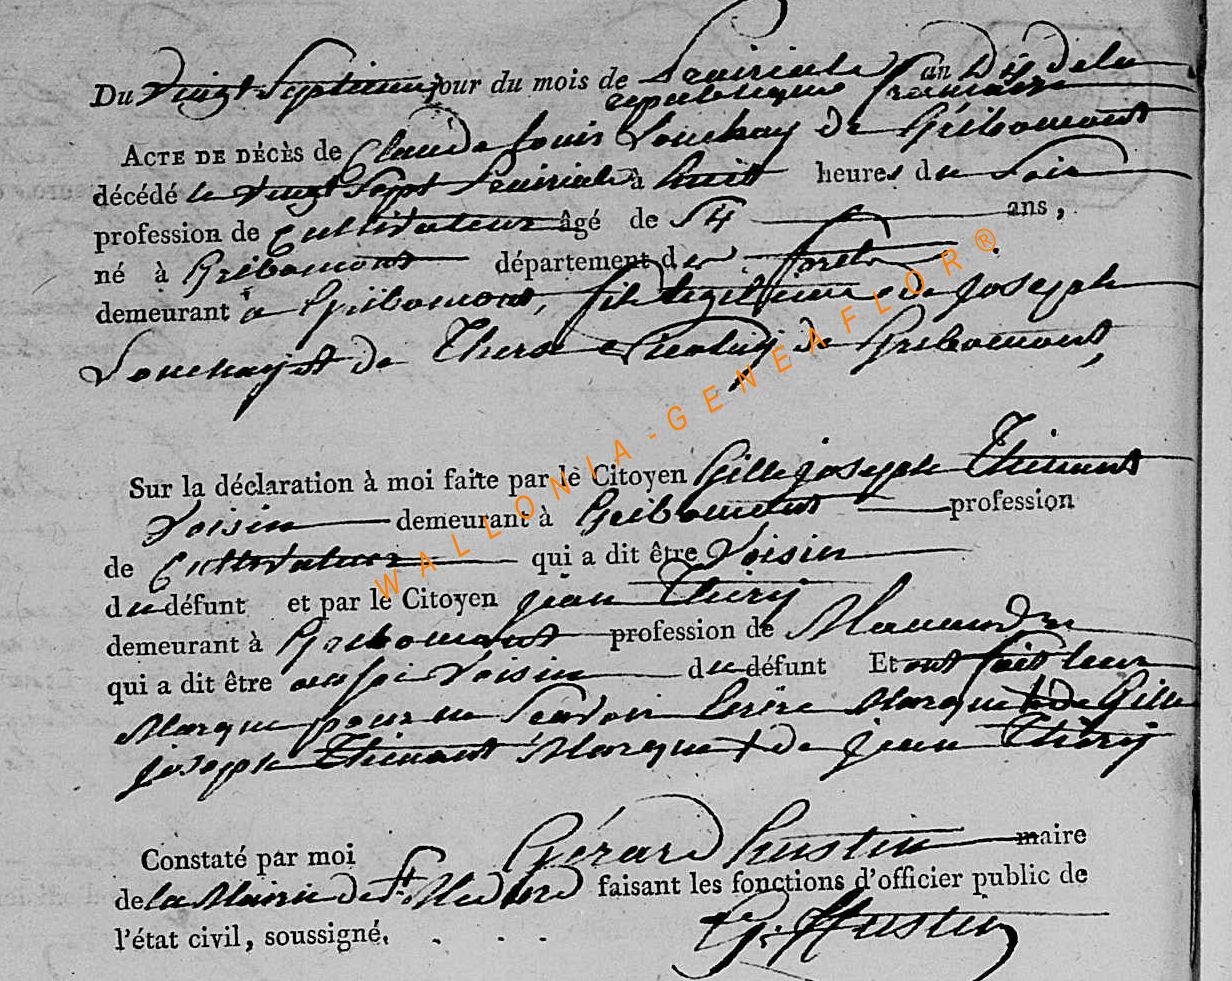 Du Vingt Septieme jour du mois de Leuiriale an Dix de la
republique francaise
ACTE DE DÉCÈS de Claude Louis Louchay de Gribomont
décédé le Vingt Sept Leuiriale à huit heures du Soir
profession de Cultivateur âgé de 54 ans,
né à Gribomont département des forets
demeurant à Gribomont, fils legitime de joseph
Louchay et de Therese de Gribomont,
Sur la déclaration à moi faite par le Citoyen Gille joseph Thimant
Voisin demeurant à Gribomont profession
de Cultivateur qui a dit être Voisin
du défunt et par le Citoyen jean Thiry
demeurant à Gribomont profession de Manuvre
qui a dit être aussi Voisin du défunt Et ont fait leur
Marque pour ne Scavoir Ecrire Marque + de Gille
joseph Thimant Marque + de jean Thiry
Constaté par moi Gérard hustin maire
de la Mairie de St. Medard faisant les fonctions d'officier public de
l'état civil, soussigné. G. Hustin
WALLONIA-GENEAFLOR®